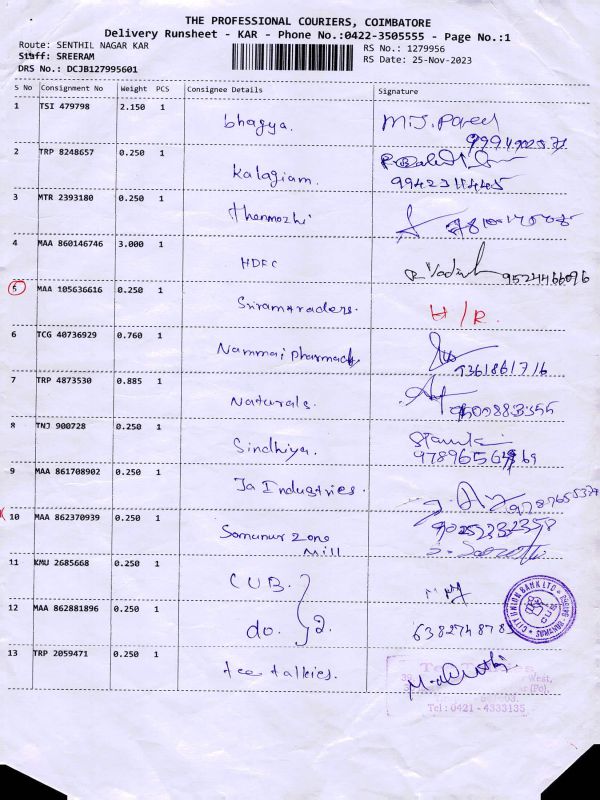 THE PROFESSIONAL COURIERS, COIMBATORE
Delivery Runsheet - KAR - Phone No.:0422-3505555 - Page No.:1
Route: SENTHIL NAGAR KAR
RS No.: 1279956
Staff: SREERAM
RS Date: 25-Nov-2023
DRS No.: DCJB127995601
S No Consignment No Weight PCS Consignee Details Signature
1 TSI 479798 2.150 1 bhagya. M.J.
2 TRP 8248657 0.250 1 Kalagiam.
9942311445
3 MTR 2393180 0.250 1 thenmozhi
4 MAA 860146746 3.000 1 HDFC 9524466096
5 MAA 105636616 0.250 1 Sriram traders. H/R.
6 TCG 40736929 0.760 1 Nammai pharmacy
9361861716
7 TRP 4873530 0.885 1 Naturals.
9500883355
8 TNJ 900728 0.250 1 Sindhiya.
9 MAA 861708902 0.250 1 Ja Industries.
10 MAA 862370939 0.250 1 Somanur Zone
Mill
11 KMU 2685668 0.250 1 CUB.
12 MAA 862881896 0.250 1 do. 2.
CITY UNION BANK LTD
CUB
SOMANUR
13 TRP 2059471 0.250 1 tee talkies.
West,
Tel: 0421 - 4333135